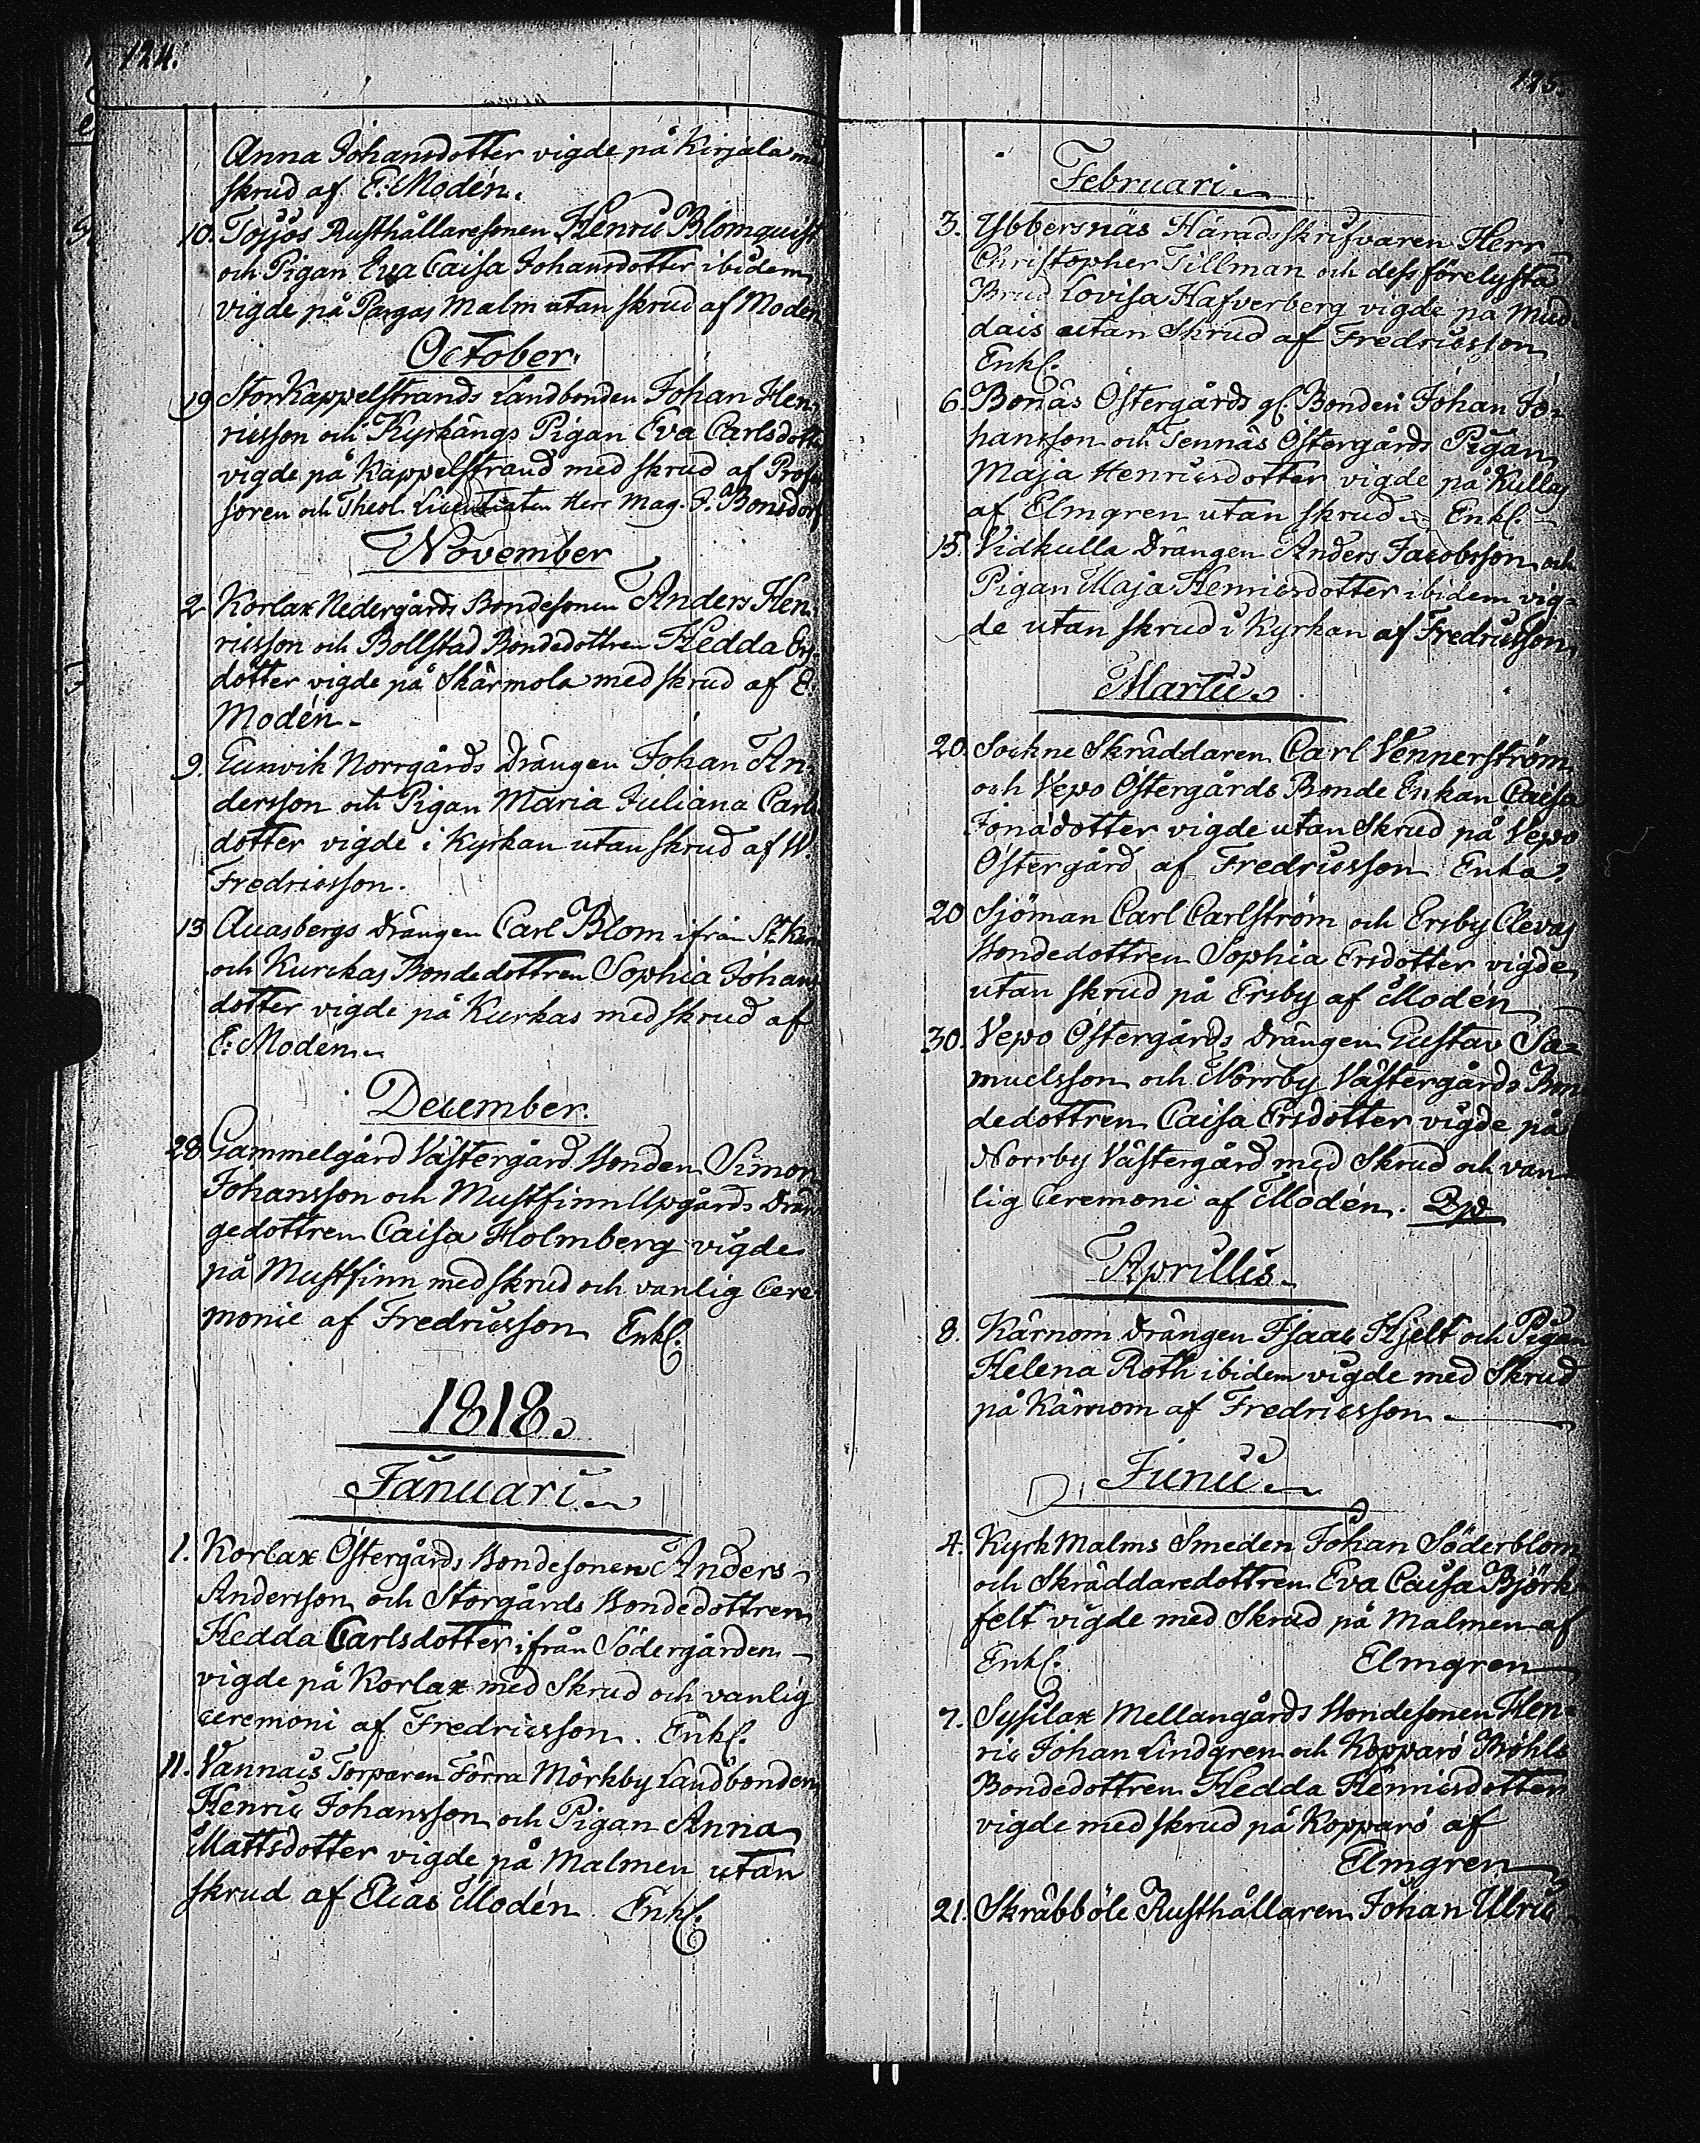 124.
Anna Johansdotter vigde på Kirjala med
skrud af E: Modén.
10. Tojjos Rusthållaresonen Henric Blomquist
och Pigan Eva Caisa Johansdotter ibidem
vigde på Pargas Malm utan skrud af Modén
October.
19 StorKappelstrands Landbonden Johan Hen-
ricsson och Kyrkängs Pigan Eva Carlsdotter
vigde på Kappelstrand med skrud af Profes
soren och Theol. Licentiaten Herr Mag. J. Bonsdorf
November
2 Korlax Nedergårds Bondesonen Anders Hen-
ricsson och Bollstad Bondedottren Hedda Ers-
dotter vigde på Skärmola med skrud af E:
Modén.
9. Gunvik Norrgårds Drängen Johan An-
dersson och Pigan Maria Juliana Carls
dotter vigde i Kyrkan utan skrud af W.
Fredricsson.
13 Auasbergs Drängen Carl Blom ifrån St Kari
och Kurckas Bondedottren Sophia Johans
dotter vigde på Kurkas med skrud af
E: Modén.
December.
28. Gammelgård Västergård Bonden Simon
Johansson och Mustfinn Upgårds Drän
gedottren Caisa Holmberg vigde
på Mustfinn med skrud och vanlig Cere
monie af Fredricsson Enkl.
1818.
Januari
1. Korlax Östergårds Bondesonen Anders
Andersson och Storgårds Bondedottren
Hedda Carlsdotter ifrån Södergården
vigde på Korlax med Skrud och vanlig
ceremoni af Fredricsson. Enkl.
11. Vannais Torparen Förra Mörkby Landbonden
Henric Johansson och Pigan Anna
Mattsdotter vigde på Malmen utan
skrud af Elias Modén. Enkl.
125.
Februari
3. Ybbersnäs Häradsskrifvaren Herr
Christopher Tillman och dess förelysta
Brud Lovisa Hafverberg vigde på Mud-
dais utan Skrud af Fredricsson
Enkl.
6. Bonäs Östergårds gl. Bonden Johan Jo-
hansson och Tennäs Östergårds Pigan
Maja Henricsdotter vigde på Kullas
af Elmgren utan skrud. Enkl.
15. Vidkulla Drängen Anders Jacobsson och
Pigan Maja Henricsdotter ibidem vig-
de utan skrud i Kyrkan af Fredricsson
Martii
20. Sockne Skräddaren Carl Vennerström
och Vepo Östergårds Bonde Enkan Caisa
Jonadotter vigde utan Skrud på Vepo
Östergård af Fredricsson Enka.
20 Sjöman Carl Carlström och Ersby Clevas
Bondedottren Sophia Ersdotter vigde
utan skrud på Ersby af Modén
30. Vepo Östergårds Drängen Gustav Sa-
muelsson och Norrby Västergårds Bon
dedottren Caisa Ersdotter vigde på
Norrby Västergård med Skrud och van
lig Ceremoni af Modén.
Aprillis
8. Kärnom Drängen Isaac Hjelt och Pigan
Helena Roth ibidem vigde med Skrud
på Kärnom af Fredricsson
Junii
4. Kyrk Malms Smeden Johan Söderblom
och Skräddaredottren Eva Caisa Björk-
felt vigde med Skrud på Malmen af
Enkl. Elmgren
7. Sysilax Mellangårds Bondesonen Hen-
ric Johan Lindgren och Kopparö Böhls
Bondedottren Hedda Henricsdotter
vigde med skrud på Kopparö af
Elmgren
21. Skräbböle Rusthållaren Johan Ulric